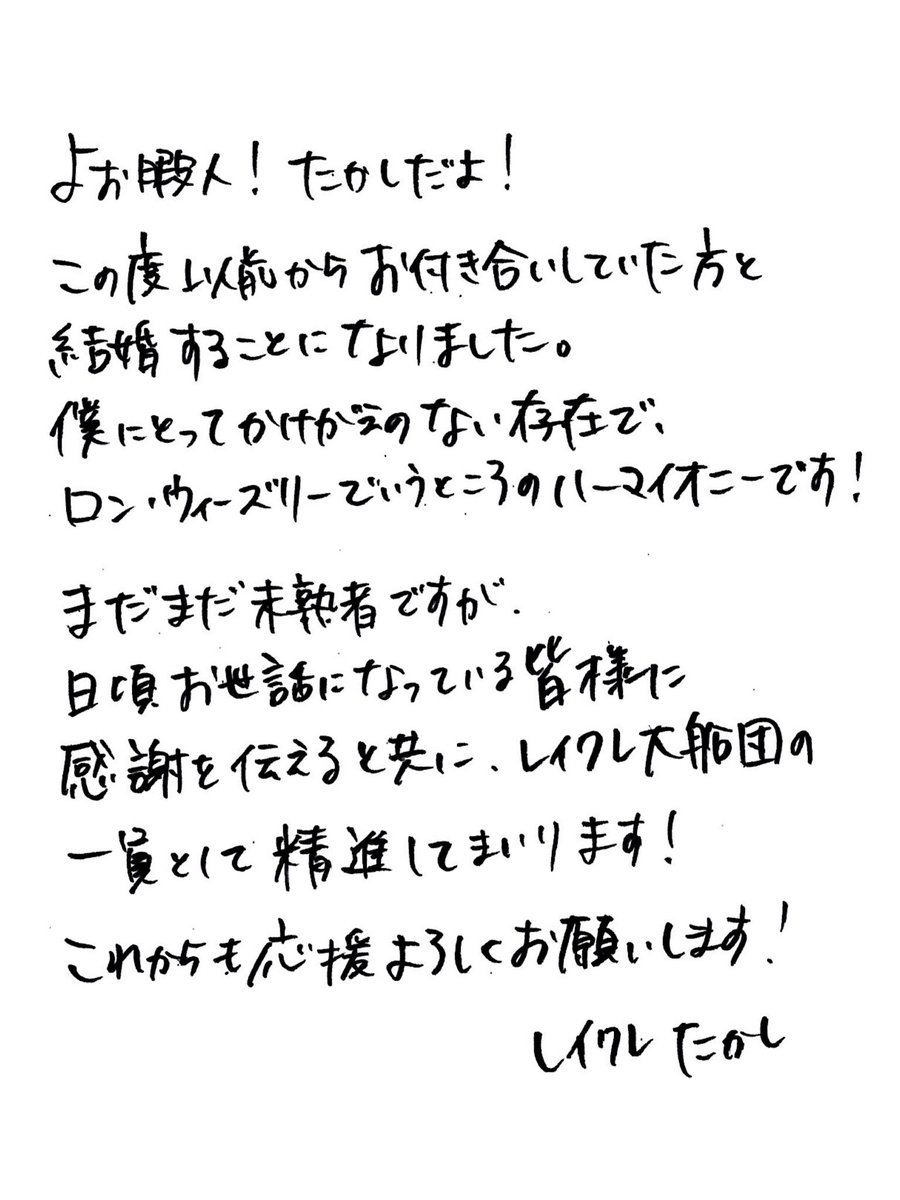 よお暇人！たかしだよ！
この度以前からお付き合いしていた方と
結婚することになりました。
僕にとってかけがえのない存在で、
ロン・ウィーズリーでいうところのハーマイオニーです！
まだまだ未熟者ですが、
日頃お世話になっている皆様に
感謝を伝えると共に、レイクレ大船団の
一員として精進してまいります！
これからも応援よろしくお願いします！
レイクレ たかし